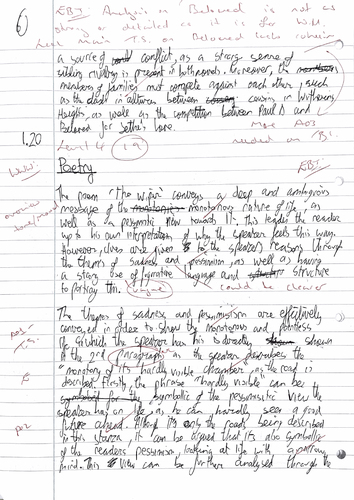 6
EBI: Analysis on Beloved is not as
strong or detailed as it is for W.H.
T.S. on Beloved
a source of conflict, as a strong sense of
sibling rivalry is present in both novels. Moreover, the
members of families must compete against each other, such
as the clash in between cousins in Wuthering
Heights, as well as the competition between Paul D and
Beloved for Sethe's love.
More AO3
1.20
Level 4 19
needed on 'B'.
WWW:
Poetry
EBI:
The poem 'The Wiper' conveys a deep and ambiguous
message of the monotonous nature of life, as
overview
well as a pessimistic view towards it. This leads the reader
up to his own interpretation of why the speaker feels this way.
However, clues are given to the speaker's reasons through
the theme of sadness and pessimism, as well as having
a strong use of figurative language and structure
to portray this. vague
could be clearer
The themes of sadness and pessimism are effectively
conveyed in order to show the monotonous and pointless
life which the speaker has. This is directly shown
T.S.
in the 2nd paragraph as the speaker describes the
"monotony of its hardly visible chamber" as the road is
E
described. Firstly, the phrase "hardly visible" can be
symbolic of the pessimistic view the
speaker has on life, as he can hardly see a good
future ahead. Although it's only the road being described
in this stanza, it can be argued that it's also symbolic
of the readers pessimism, looking at life with a narrow
mind. This view can be further analysed through the